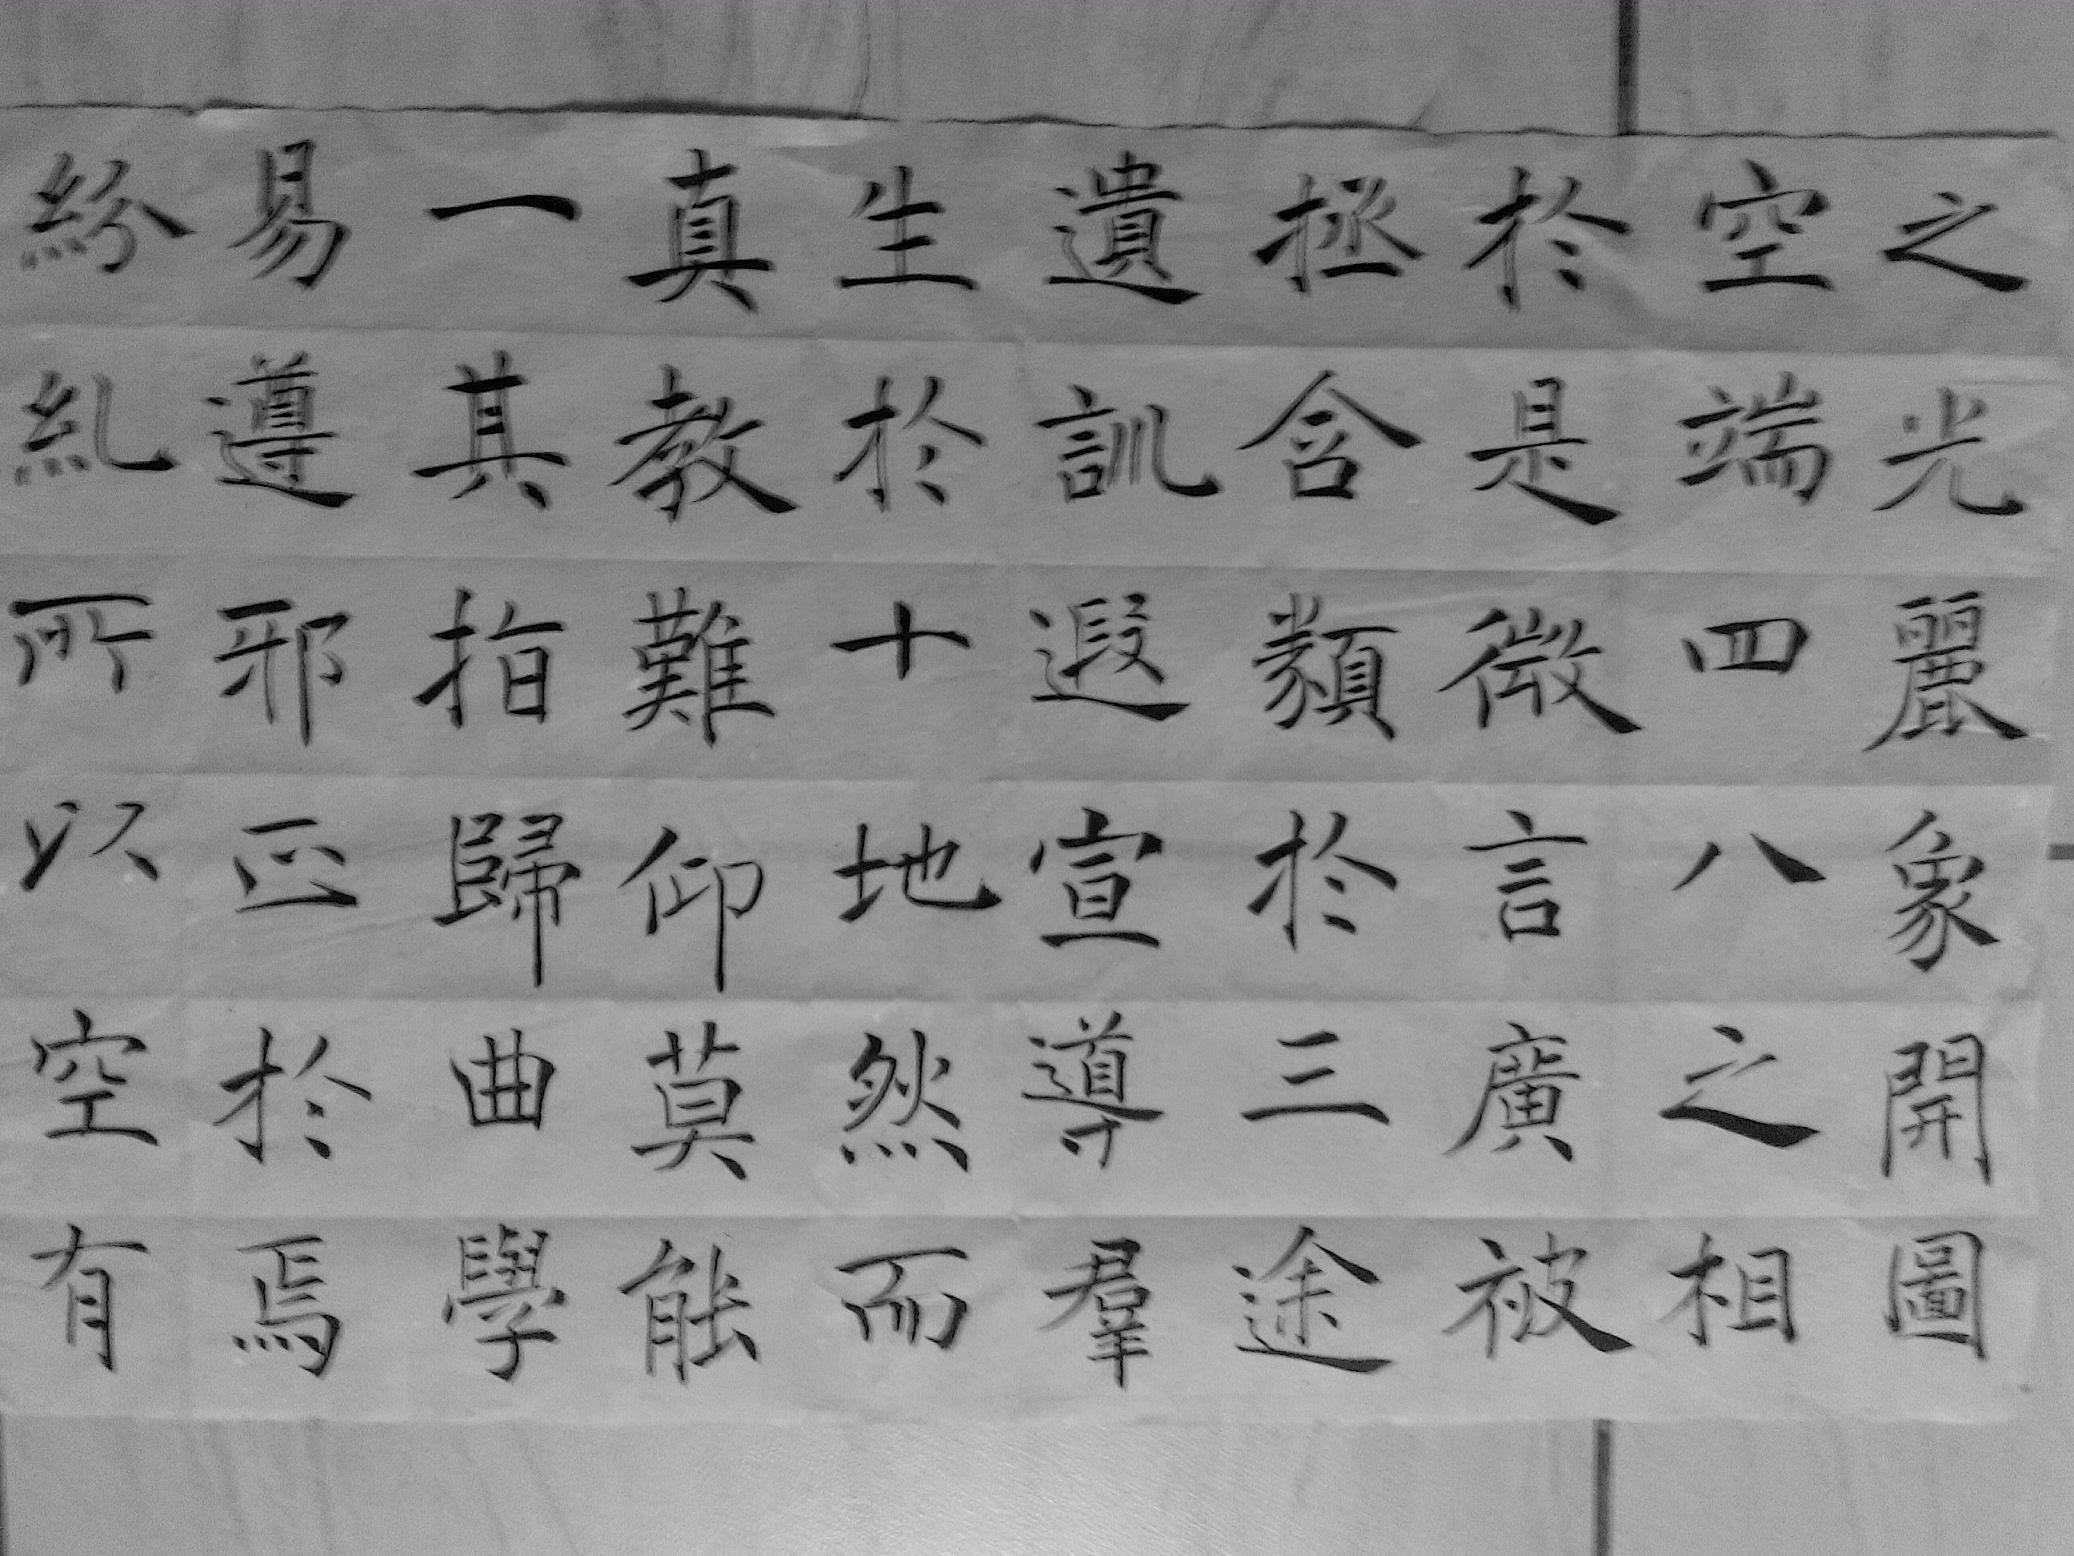 之光麗象開圖
空端四八之相
於是微言廣被
拯含類於三途
遺訓遐宣導羣
生於十地然而
真教難仰莫能
一其指歸曲學
易遵邪正於焉
紛糺所以空有